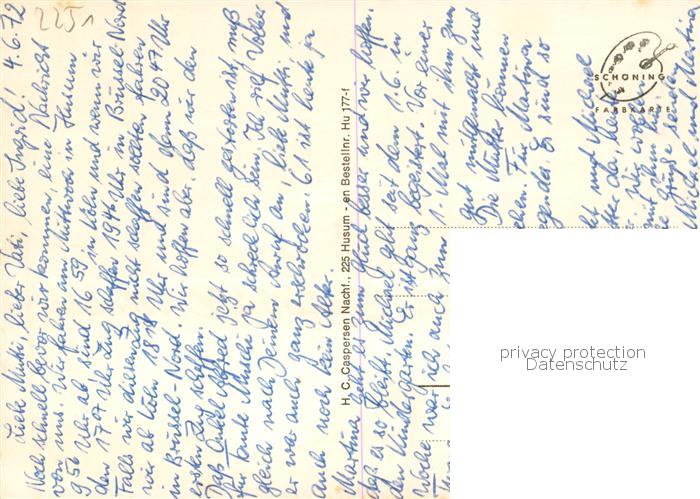 2251
4.6.72
Liebe Mutti, lieber Vati, liebe Ingrid!
Noch schnell bevor wir kommen, eine Nachricht
von uns. Wir fahren am Mittwoch in Husum
9⁵⁶ Uhr ab sind 16⁵⁹ in Köln und wenn wir
den 17⁰⁷ Uhr Zug schaffen 19⁴⁶ Uhr in Brüssel-Nord
Falls wir diesen Zug nicht schaffen sollten fahren
wir ab Köln 18¹⁸ Uhr und sind dann 20⁴⁷ Uhr
in Brüssel-Nord. Wir hoffen aber, daß wir den
ersten Zug schaffen.
Daß Onkel Alfred jetzt so schnell gestorben ist, muß
für Tante Muschi ja schrecklich sein. Ich rief Volker
gleich nach Deinem Anruf an, liebe Mutti, und
er war auch ganz erschrocken. 61 ist heute ja
auch noch kein Alter.
H. C. Caspersen Nachf., 225 Husum - en Bestellnr. Hu 177-f
Martina geht es zum Glück besser und wir hoffen,
daß es so bleibt. Michael geht seit dem 1.6. in
den Kindergarten. Er ist ganz begeistert. Vor einer
Woche war ich auch zum 1. Mal mit ihm zum
gut mitgemacht und
Die Mutter können
Für Martina
Es sind so
mit Michael
SCHÖNING
FARBKARTE
privacy protection
Datenschutz